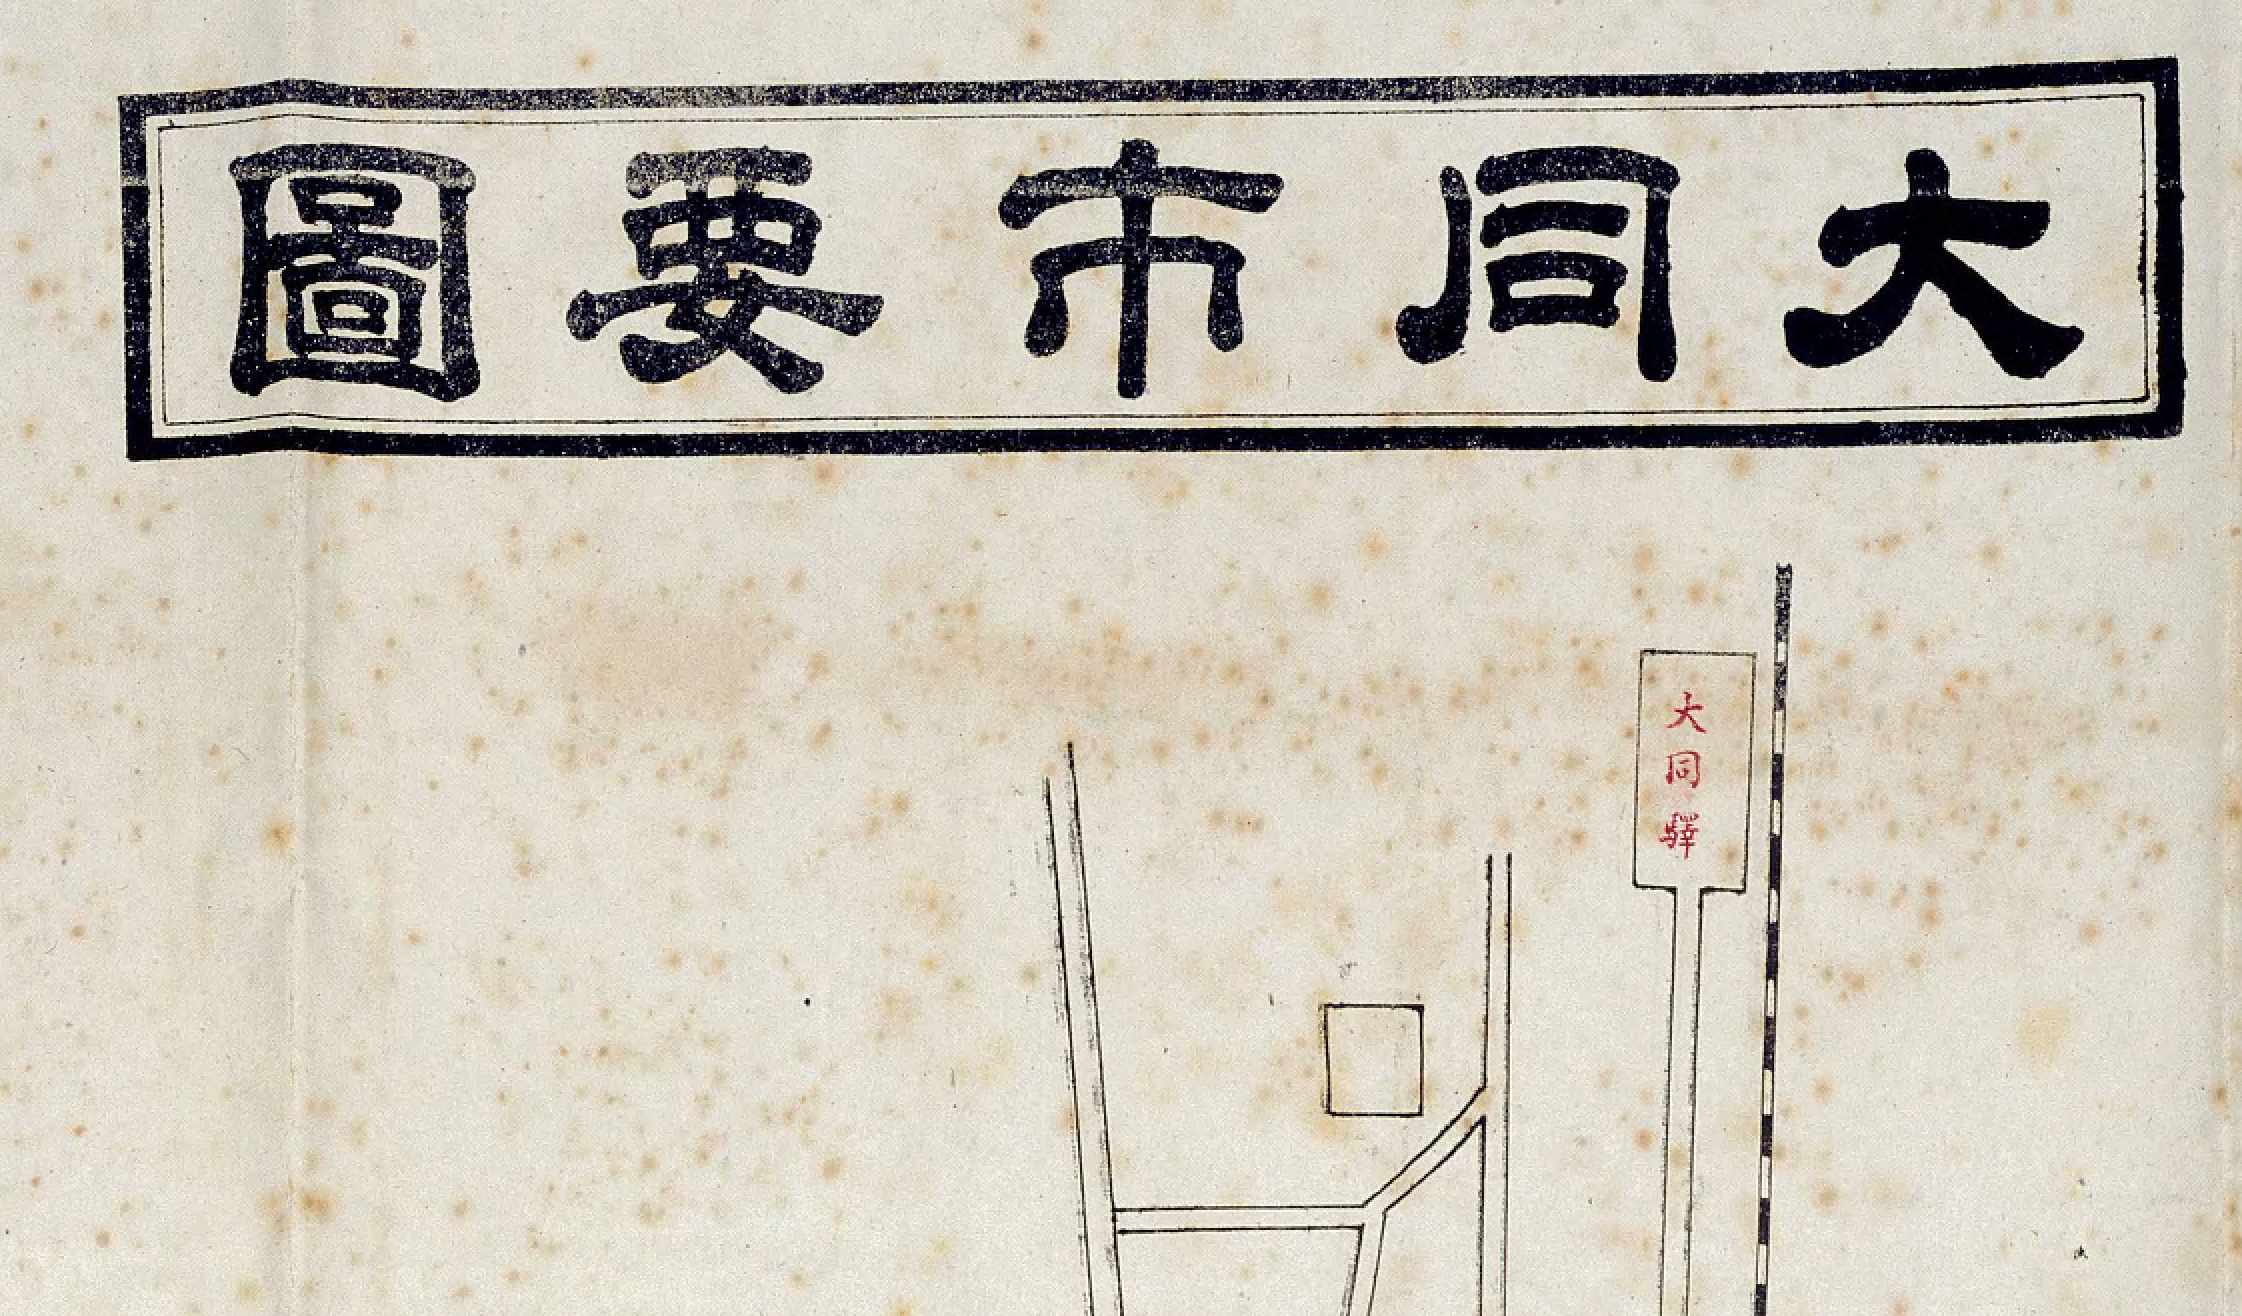 大同市要圖
大同驛